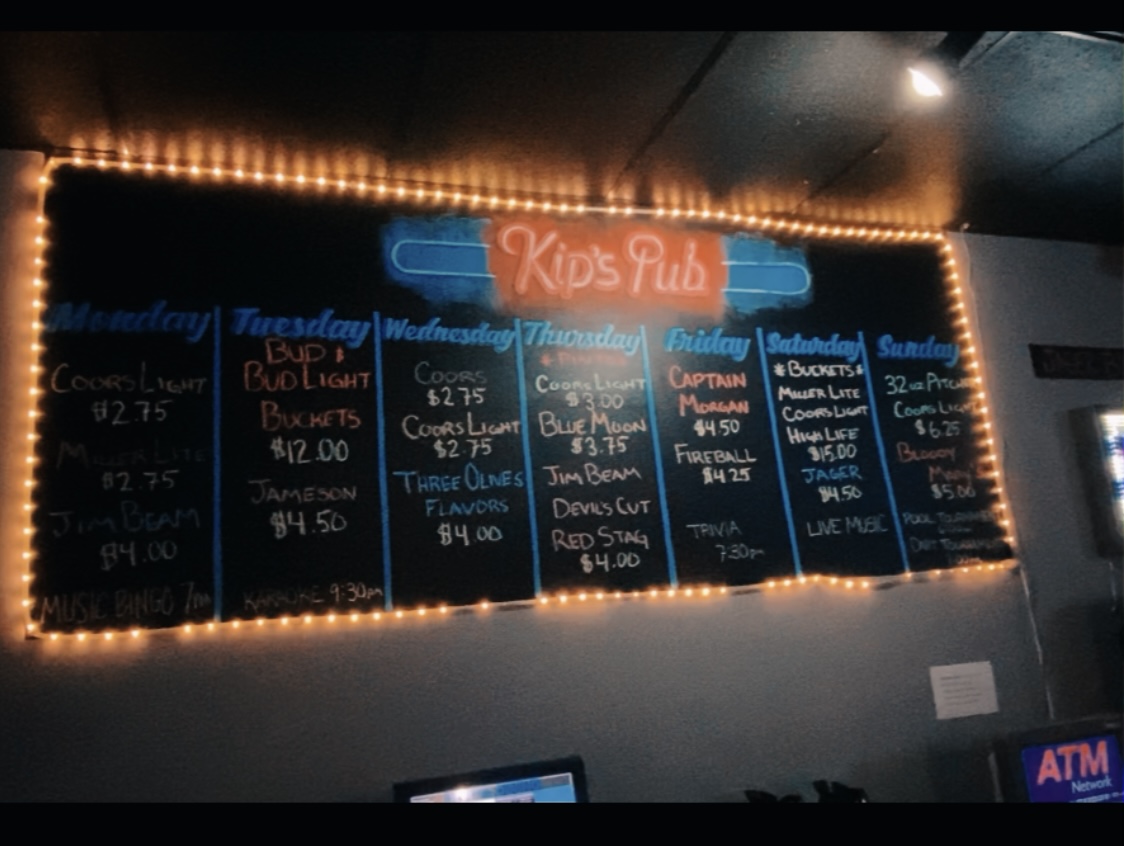 Kip's Pub
Monday
Coors Light
$2.75
Miller Lite
$2.75
Jim Beam
$4.00
Music Bingo 7pm
Tuesday
Bud &
Bud Light
Buckets
$12.00
Jameson
$4.50
Karaoke 9:30pm
Wednesday
Coors
$2.75
Coors Light
$2.75
Three Olives
Flavors
$4.00
Thursday
Coors Light
$3.00
Blue Moon
$3.75
Jim Beam
Devil's Cut
Red Stag
$4.00
Friday
Captain
Morgan
$4.50
Fireball
$4.25
Trivia
7:30pm
Saturday
*Buckets*
Miller Lite
Coors Light
High Life
$15.00
Jager
$4.50
Live Music
Sunday
32 oz Pitcher
Coors Light
$6.25
Bloody
Mary
$5.00
Pool Tournament
Dart Tournament
ATM
Network